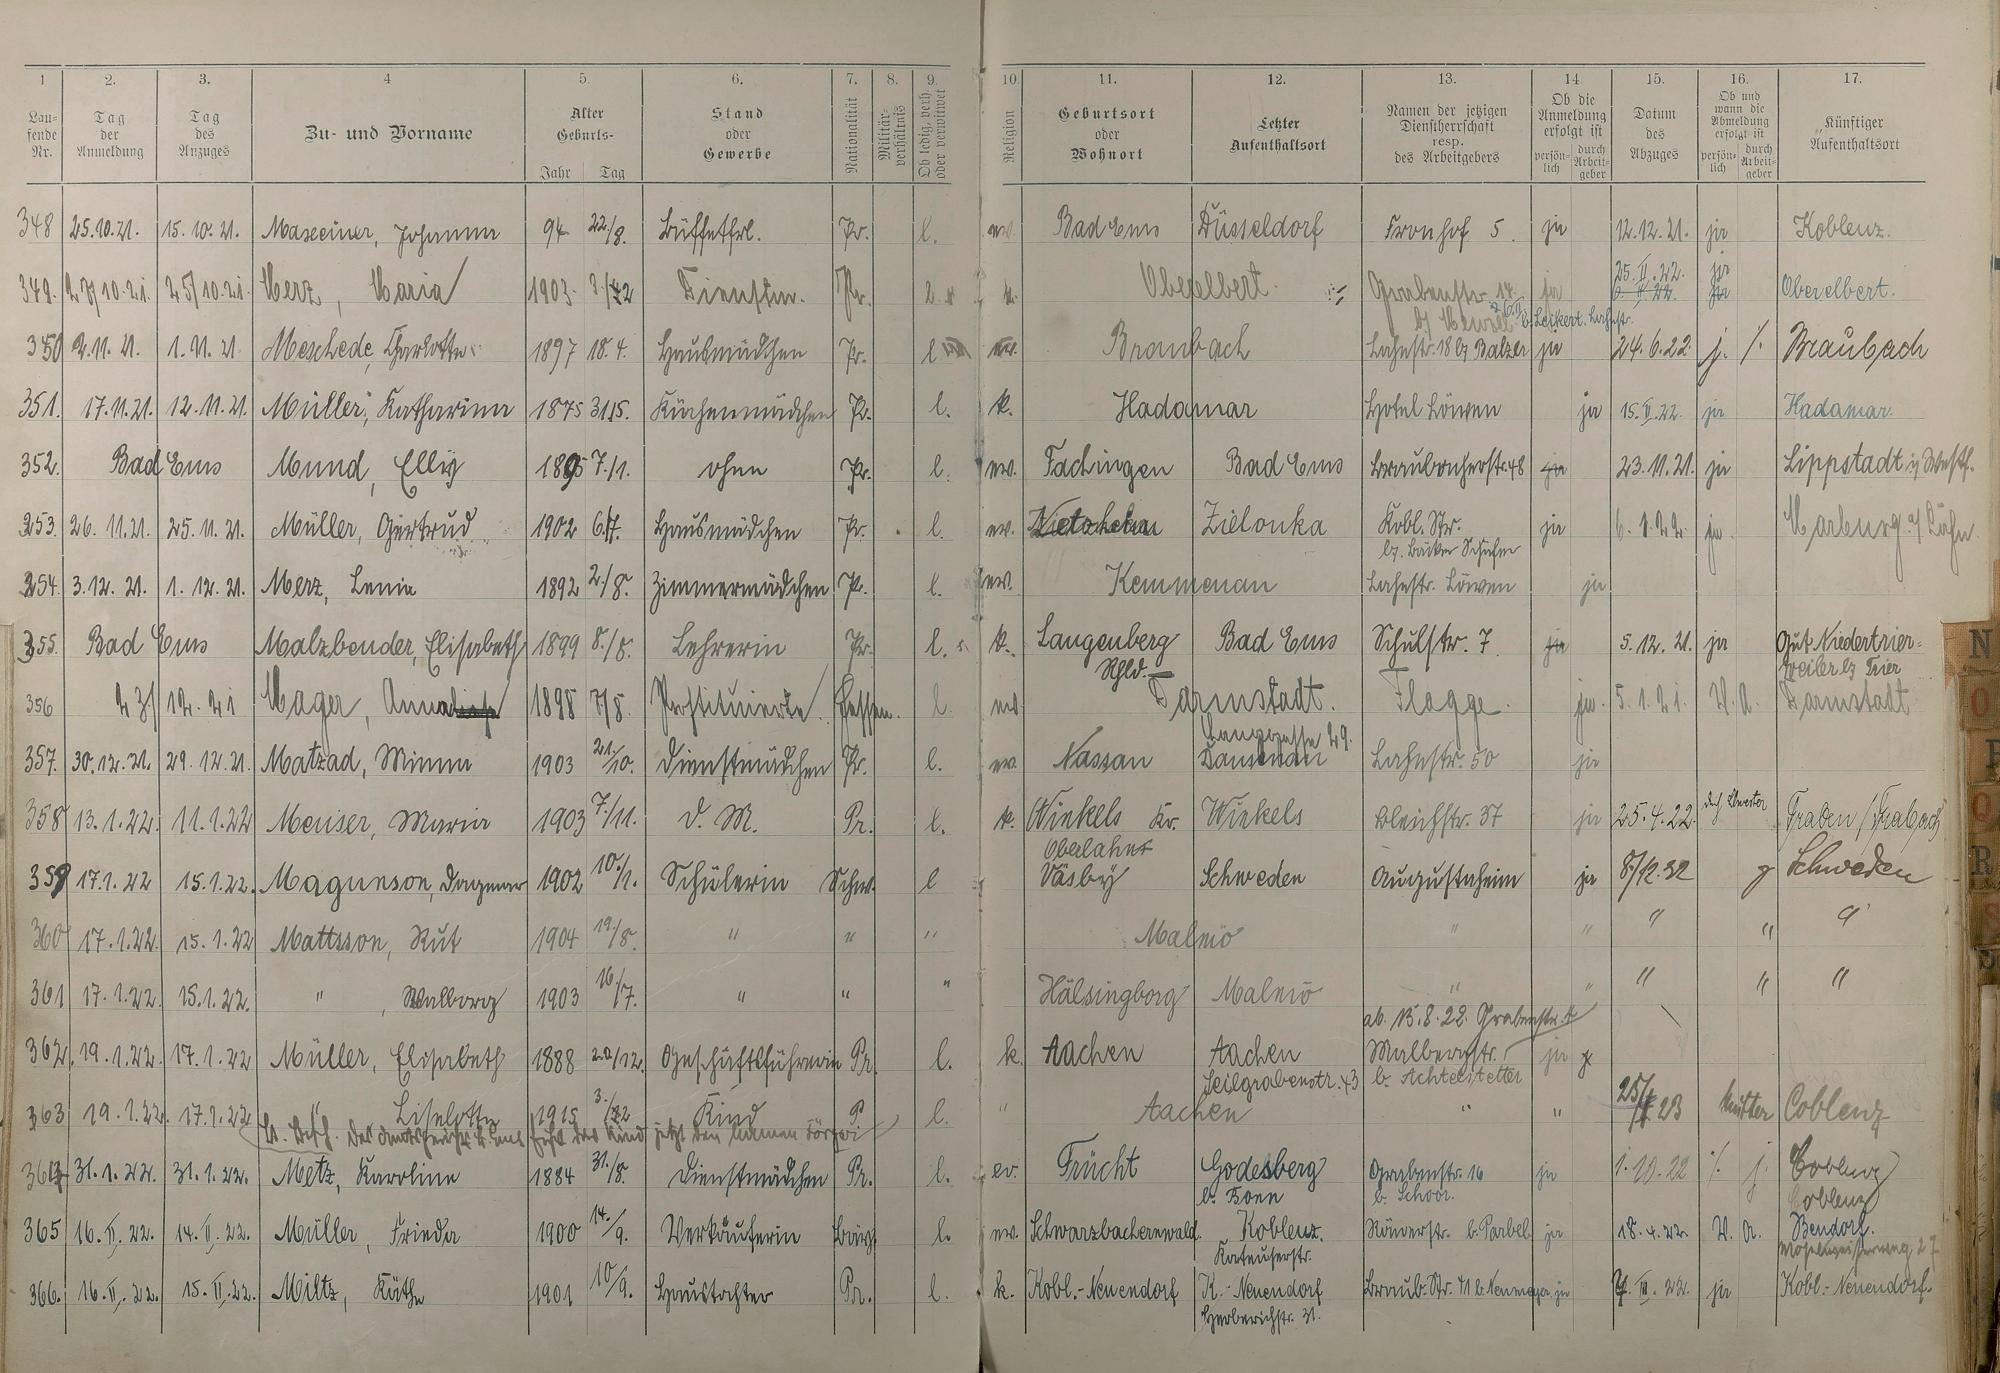 1 2. 3. 4 5. 6. 7. 8. 9. 10. 11. 12. 13. 14 15. 16. 17.
Lau-
fende
Nr.
Tag
der
Anmeldung
Tag
des
Anzuges
Zu- und Vorname
Alter
Geburts-
Jahr Tag
Stand
oder
Gewerbe
Nationalität
Militär-
verhältnis
Ob ledig, verh.
oder verwitwet
Religion
Geburtsort
oder
Wohnort
Letzter
Aufenthaltsort
Namen der jetzigen
Dienstherrschaft
resp.
des Arbeitgebers
Ob die
Anmeldung
erfolgt ist
persön-
lich
durch
Arbeit-
geber
Datum
des
Abzuges
Ob und
wann die
Abmeldung
erfolgt ist
persön-
lich
durch
Arbeit-
geber
Künftiger
Aufenthaltsort
348 25.10.21. 15.10.21. Johanna 94 22/8. Büffetfrl. Pr. l. ev. Bad Ems Düsseldorf Fronhof 5. ja 12.12.21. ja Koblenz.
349. 27/10.21. 25/10.21. Merz, Maria 1903. Dienstm. Pr. k. Oberelbert. Grabenstr. 14. ja 25.II.22. ja Oberelbert.
b. Leikert. Lahnstr.
350 2.11.21. 1.11.21 Meschede, Charlotte 1897 18.4. Hausmädchen Pr. l ev. Braubach Lahnstr. 18 b/ Balzer ja 24.6.22. j. /. Braubach
351. 17.11.21. 12.11.21. Müller, Katharina 1875 31.5. Küchenmädchen Pr. l. k. Hadamar Hotel Löwen ja 15.II.22. ja Hadamar.
352. Bad Ems Mund, Elly 1895 7./1. ohne Pr. l. ev. Fachingen Bad Ems Braubacherstr. 48 ja 23.11.21. ja Lippstadt i/ Westf.
353. 26.11.21. 25.11.21. Müller, Gertrud 1902 6./7. Hausmädchen Pr. l. ev. Zielonka Kobl. Str. ja 6.1.22 ja Marburg a/ Lahn.
b. Bäcker
354. 3.12.21. 1.12.21. Merz, Lenia 1892 2./8. Zimmermädchen Pr. l. ev. Kemmenau Lahnstr. Löwen ja
355. Bad Ems Malzbender, Elisabeth 1899 8./8. Lehrerin Pr. l. k. Langenberg Bad Ems Schulstr. 7 ja 5.12.21. ja Gut Niedertrier-
Rhld. weiler b/ Trier
356 23/12.21 Mager, Anna 1898 7/8. Prostituierte. Hessen. l. Darmstadt. Flagge. ja. 5.1.21. V. A. Darmstadt
Langgasse 29.
357. 30.12.21. 29.12.21. Matzad, Minna 1903 21./10. Dienstmädchen Pr. l. ev. Nassau Dausenau Lahnstr. 50 ja
358 13.1.22. 11.1.22 Meuser, Maria 1903 7./11. D. M. Pr. l. k. Winkels Kr. Winkels Bleichstr. 37 ja 25.4.22. Traben / Trabach
Oberlahn
359 17.1.22 15.1.22. Magunson, Dagmar 1902 10./1. Schülerin Schw. l Väsby Schweden Augustaheim ja g Schweden
360 17.1.22. 15.1.22 Mattsson, Rut 1904 19./8. " " " Malmö " " " " "
361 17.1.22. 15.1.22. " , Walborg 1903 16/7. " " " Hälsingborg Malmö " " " " "
ab. 15.8.22. Grabenstr.
362. 19.1.22. 17.1.22 Müller, Elisabeth 1888 20/12. Geschäftsführerin Pr. l. k. Aachen Aachen Malbergstr. ja
Seilgrabenstr. 43 b. Achterstetter
363 19.1.22. 17.1.22 " Liselotte 1915 Kind P l. " Aachen " " 25/ 23 Mutter Coblenz
führt das Kind jetzt den Namen
364 31.1.22. 31.1.22. Metz, Karoline 1884 31./8. Dienstmädchen Pr. l. ev. Frücht Godesberg Grabenstr. 16 ja 1.10.22 /. j. Coblenz
b. Bonn b. Schoor. Coblenz
365 16.II.22. 14.II.22. Müller, Frieda 1900 14./9. Verkäuferin l. ev. Schwarzbacherwald. Koblenz. Römerstr. b. Parbel ja 18.4.22. V. A. Bendorf.
366. 16.II.22. 15.II.22. Miltz, Käthe 1901 10/9. Haustochter Pr. l. k. Kobl.-Neuendorf K.-Neuendorf Braub. Str. 41 b. Neumeyer ja III.22. ja Kobl.-Neuendorf.
Herberichstr. 31.
N
O
P
Q
R
S